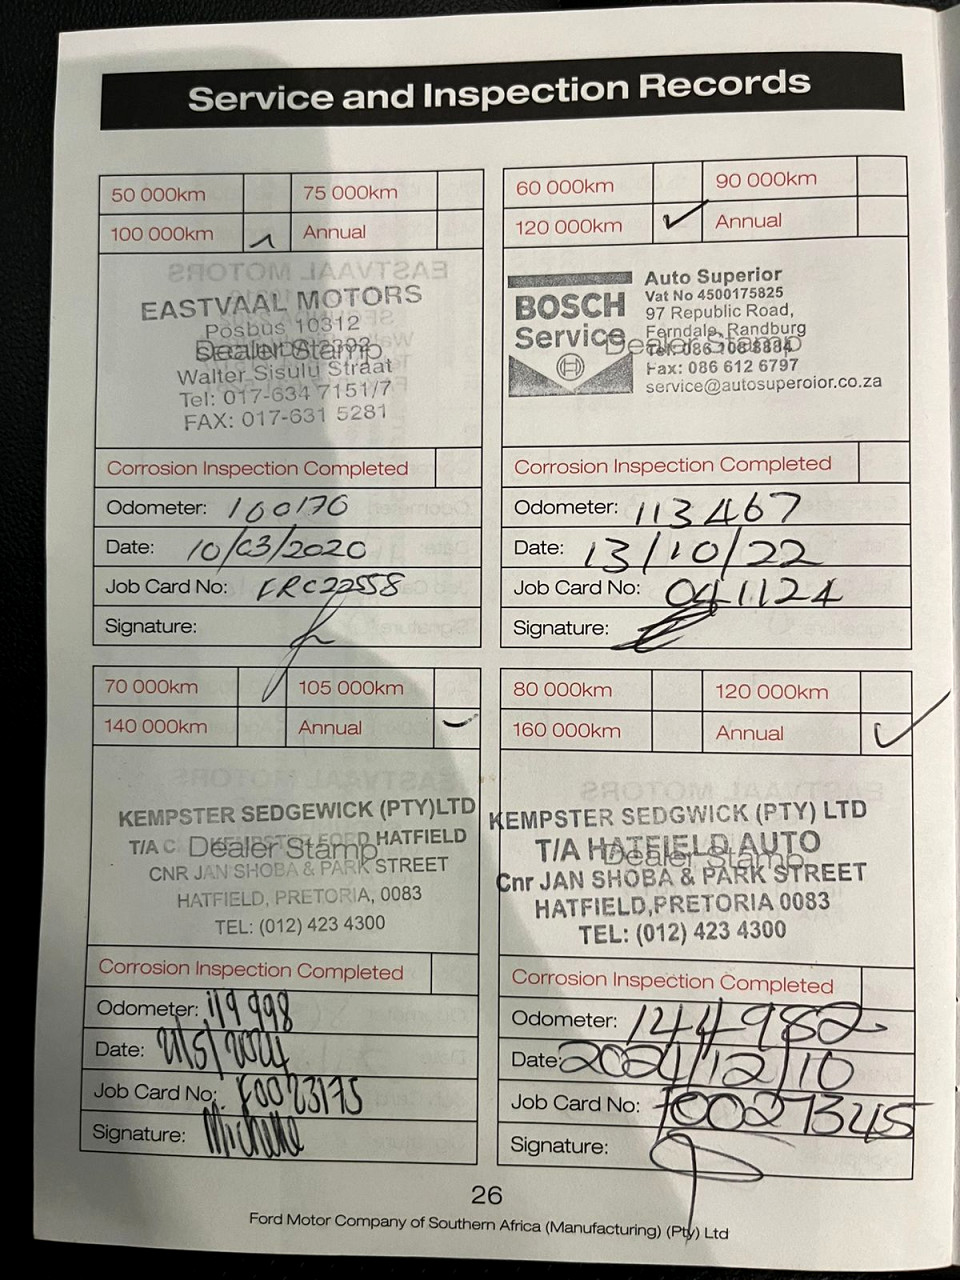 Service and Inspection Records
50 000km 75 000km
100 000km Annual
EASTVAAL MOTORS
Posbus 10312
Dealer Stamp
Walter Sisulu Straat
Tel: 017-634 7151/7
FAX: 017-631 5281
Corrosion Inspection Completed
Odometer: 100170
Date: 10/03/2020
Job Card No:
Signature:
60 000km 90 000km
120 000km ✓ Annual
BOSCH
Service
Auto Superior
Vat No 4500175825
97 Republic Road,
Ferndale, Randburg
Dealer Stamp
Tel: 086 108 8884
Fax: 086 612 6797
service@autosuperoior.co.za
Corrosion Inspection Completed
Odometer: 113467
Date: 13/10/22
Job Card No: 041124
Signature:
70 000km 105 000km
140 000km Annual
KEMPSTER SEDGEWICK (PTY)LTD
T/A HATFIELD
Dealer Stamp
CNR JAN SHOBA & PARK STREET
HATFIELD, PRETORIA, 0083
TEL: (012) 423 4300
Corrosion Inspection Completed
Odometer: 119 998
Date:
Job Card No: F0023175
Signature: Michelle
80 000km 120 000km
160 000km Annual ✓
KEMPSTER SEDGWICK (PTY) LTD
T/A HATFIELD AUTO
Dealer Stamp
Cnr JAN SHOBA & PARK STREET
HATFIELD,PRETORIA 0083
TEL: (012) 423 4300
Corrosion Inspection Completed
Odometer: 144982
Date: 2024/12/10
Job Card No: F0027345
Signature:
26
Ford Motor Company of Southern Africa (Manufacturing) (Pty) Ltd